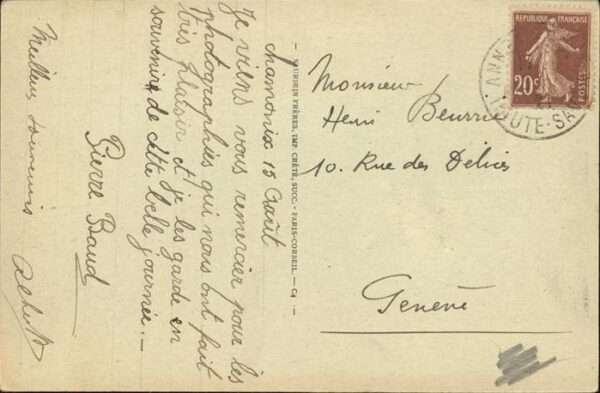 chamonix 15 Août
Je viens vous remercier pour les
photographies qui nous ont fait
très plaisir et je les garde en
souvenire de cette belle journée. –
Pierre Baud
Meilleurs souvenirs
NEURDEIN FRÈRES, IMP. CRÉTÉ, SUCC. - PARIS-CORBEIL. —
Monsieur
Henri Beurrie
10. Rue des Délices
Genève
REPUBLIQUE FRANÇAISE
20c
POSTES
ANN
HAUTE-SA